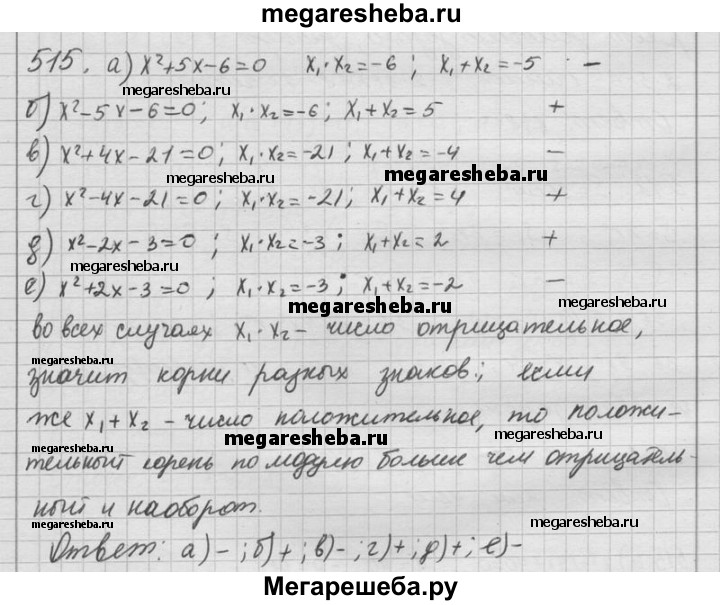 megaresheba.ru
515. а) x²+5x-6=0 x₁·x₂=-6; x₁+x₂=-5 -
megaresheba.ru
б) x²-5x-6=0; x₁·x₂=-6; x₁+x₂=5 +
в) x²+4x-21=0; x₁·x₂=-21; x₁+x₂=-4 -
megaresheba.ru megaresheba.ru
г) x²-4x-21=0; x₁·x₂=-21; x₁+x₂=4 +
д) x²-2x-3=0; x₁·x₂=-3; x₁+x₂=2 +
megaresheba.ru
е) x²+2x-3=0; x₁·x₂=-3; x₁+x₂=-2 -
megaresheba.ru megaresheba.ru
во всех случаях x₁·x₂ - число отрицательное,
megaresheba.ru
значит корни разных знаков; если
же x₁+x₂ - число положительное, то положи-
megaresheba.ru megaresheba.ru
тельный корень по модулю больше чем отрицатель-
ный и наоборот.
megaresheba.ru megaresheba.ru
Ответ: а) -; б) +; в) -; г) +; д) +; е) -
Мегарешеба.ру